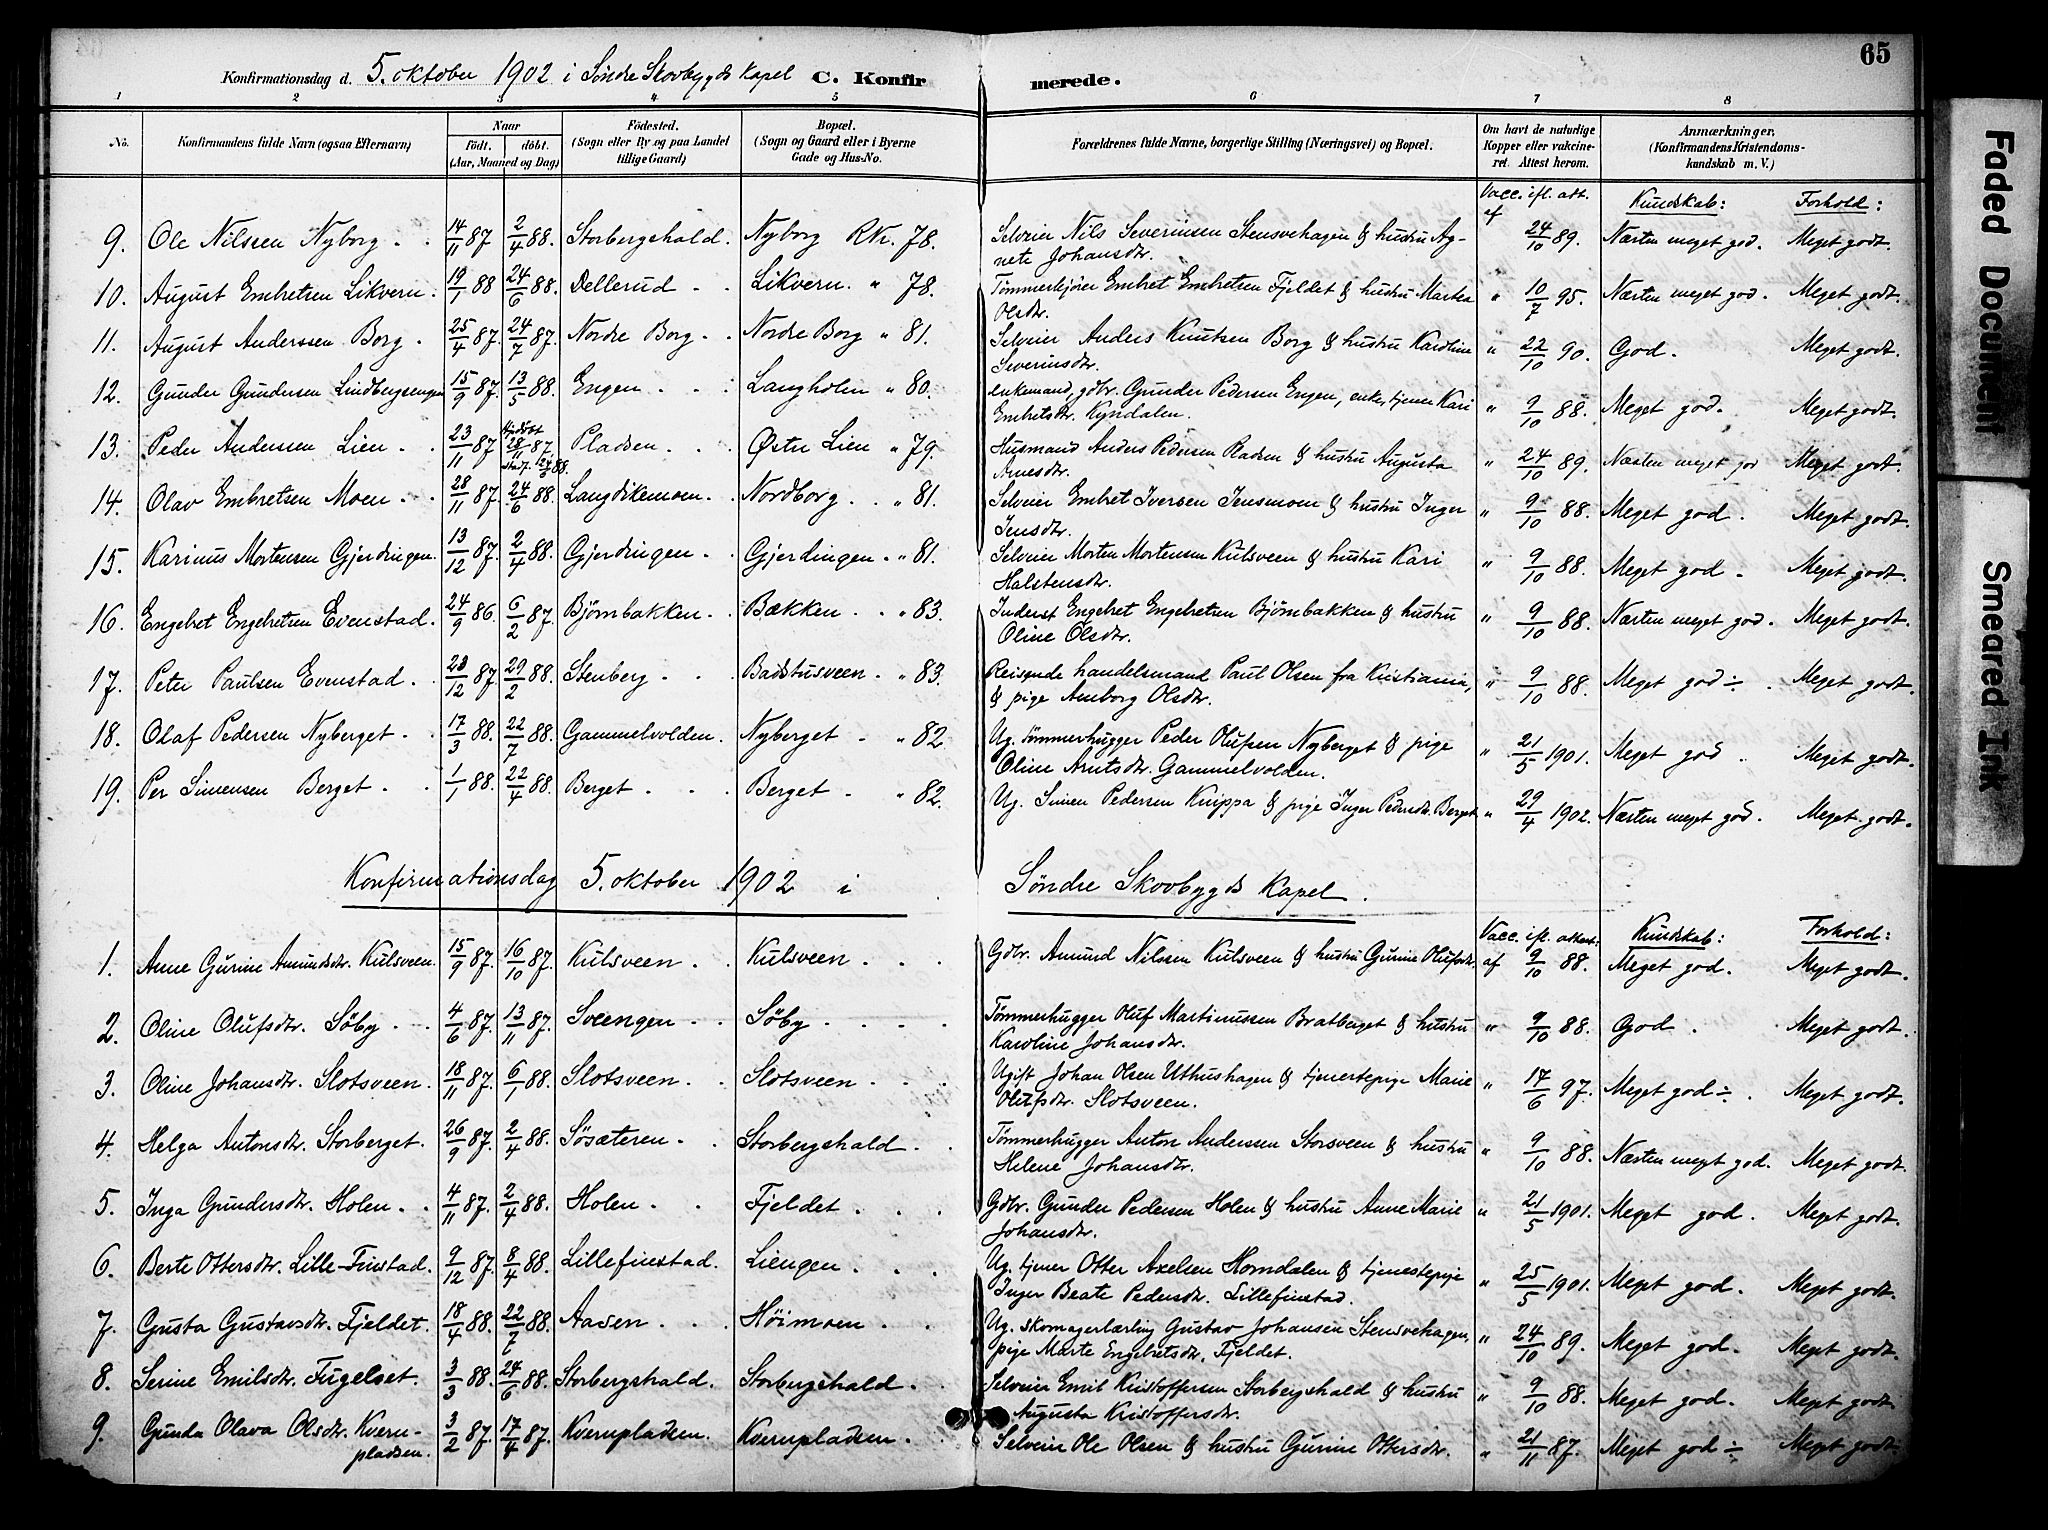 65
Konfirmationsdag d. 5. oktober 1902 i Søndre Skovbygds Kapel C. Konfirmerede.
1 2 3 4 5 6 7 8
No. Konfirmandens fulde Navn (ogsaa Efternavn) Naar födt. döbt. (Aar, Maaned og Dag) Födested. (Sogn eller By og paa Landet tillige Gaard) Bopæl. (Sogn og Gaard eller i Byerne Gade og Hus-No. Forældrenes fulde Navne, borgerlige Stilling (Næringsvei) og Bopæl. Om havt de naturlige Kopper eller vakcineret. Attest herom. Anmærkninger. (Konfirmandens Kristendomskundskab m. V.)
Vacc. ifl. att. af Kundskab: Forhold:
9. Ole Nilssen Nyborg. 14/11 87 2/4 88. Storbergshald. Nyborg RKr. 78. Selveier Nils Severinsen Stensvehagen & hustru Agnete Johansdtr. 24/10 89. Næsten meget god. Meget godt.
10. August Embretsen Likvern. 19/1 88 24/6 88. Dellerud Likvern. " 78. Tømmerkjører Embret Embretsen Fjeldet & hustru Marten Olsdtr. " 10/7 95. Næsten meget god. Meget godt.
11. August Anderssen Borg. 25/4 87. 24/7 87. Nordre Borg Nordre Borg " 81. Selveier Anders Knutsen Borg & hustru Karoline Severinsdtr. " 22/10 90. God. Meget godt.
12. Gunder Gundersen Lindbergsengen 15/9 87. 13/5 88. Engen Langholen " 80. enkemand, gdbr. Gunder Pedersen Engen, enke, tjener Kari Embretsdtr. Kyndalen. " 9/10 88. Meget god. Meget godt.
13. Peder Anderssen Lien 23/11 87 hjdøbt 28/11 87. stadf. 12/4 88. Pladsen Østre Lien " 79. Husmand Anders Pedersen Pladsen & hustru Augusta Arnesdtr. " 24/10 89. Næsten meget god Meget godt.
14. Olav Embretsen Moen 28/11 87. 24/6 88. Langdikemoen. Nordborg. " 81. Selveier Embret Iversen Jensmoen & hustru Inger Jensdtr. " 9/10 88. Meget god. Meget godt.
15. Karinus Mortensen Gjerdingen. 13/12 87. 2/4 88. Gjerdingen Gjerdingen " 81. Selveier Morten Mortensen Kulsveen & hustru Kari Halstensdtr. " 9/10 88. Meget god. Meget godt.
16. Engebret Engebretsen Evenstad. 24/9 86. 6/2 87. Bjørnbakken. Bækken " 83. Inderst Engebret Engebretsen Bjørnbakken & hustru Oline Olsdtr. " 9/10 88. Næsten meget god. Meget godt.
17. Peter Paulsen Evenstad. 23/12 87. 29/2 88. Stenberg Badstusveen " 83. Reisende handelsmand Paul Olsen fra Kristiania, & pige Amborg Olsdtr. " 9/10 88. Meget god ÷. Meget godt.
18. Olaf Pedersen Nyberget. 17/3 88. 22/7 88. Gammelvolden. Nyberget " 82 Ug. tømmerhugger Peder Olufsen Nyberget & pige Oline Arntsdtr. Gammelvolden. " 21/5 1901. Meget god. Meget godt.
19. Per Simensen Berget. 1/1 88. 22/4 88. Berget Berget " 82. Ug. Simen Pedersen Knippa & pige Inger Pedersdtr. Berget " 29/4 1902. Næsten meget god. Meget godt.
Konfirmationsdag 5. oktober 1902 i Søndre Skovbygds Kapel.
Vacc. ifl. attest: Kundskab: Forhold:
1. Anne Gurine Amundsdtr. Kulsveen. 15/9 87. 16/10 87. Kulsveen Kulsveen Gdbr. Amund Nilssen Kulsveen & hustru Gurine Olufsdtr. af 9/10 88. Meget god. Meget godt.
2. Oline Olufsdtr. Søby. 4/6 87. 13/11 87. Sveengen Søby Tømmerhugger Oluf Martinussen Bratberget & hustru Karoline Johansdtr. " 9/10 88. God. Meget godt.
3. Oline Johansdtr. Slotsveen. 18/11 87. 6/1 88. Slotsveen Slotsveen Ugift Johan Olsen Uthushagen & tjenestepige Marie Olufsdtr. Slotsveen. " 17/6 97. Meget god ÷. Meget godt.
4. Helga Antonsdtr. Storberget. 26/9 87. 2/4 88. Søsæteren Storbergshald. Tømmerhugger Anton Anderssen Storsveen & hustru Helene Johansdtr. " 9/10 88. Næsten meget god. Meget godt.
5. Inga Gundersdtr. Holen. 4/11 87. 2/4 88. Holen Fjeldet Gdbr. Gunder Pedersen Holen & hustru Anne Marie Johansdtr. " 21/5 1901. Meget god. Meget godt.
6. Berte Ottersdtr. Lille-Finstad. 9/12 87. 8/4 88. Lillefinstad. Liengen Ug. tjener Otter Axelsen Horndalen & tjenestepige Inger Beate Pedersdtr. Lillefinstad. " 25/5 1901. Meget god. Meget godt.
7. Gusta Gustavsdtr. Fjeldet. 18/4 88. 22/7 88. Aasen Høimoen Ug. skomagerlærling Gustav Johansen Stensvehagen, pige Marte Engebretsdtr. Fjeldet. " 24/10 89. Meget god. Meget godt.
8. Serine Emilsdtr. Fugelset. 3/3 88. 24/6 88. Storbergshald. Storbergshald. Selveier Emil Kristoffersen Storbergshald & hustru Augusta Kristoffersdtr. " 9/10 88. Meget god. Meget godt.
9. Gunda Olava Olsdtr. Kvernpladsen. 3/2 87. 17/4 87. Kvernpladsen. Kvernpladsen. Selveier Ole Olsen & hustru Gurine Ottersdtr. " 21/11 87. Meget god ÷ Meget godt.
Faded Document
Smeared Ink